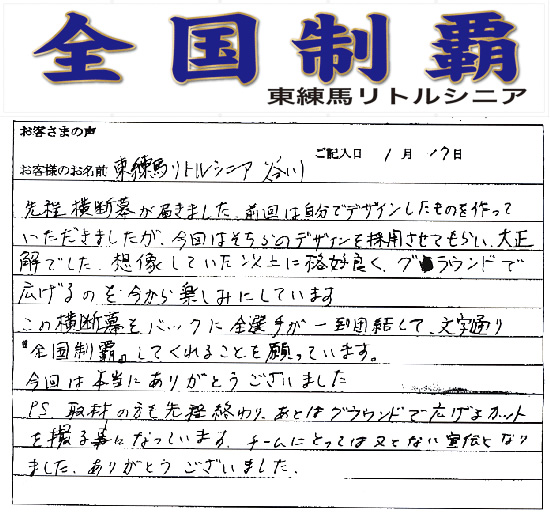 全国制覇
東練馬リトルシニア
お客さまの声
ご記入日 1月17日
お客様のお名前 東練馬リトルシニア 谷川
先程横断幕が届きました。前回は自分でデザインしたものを作って
いただきましたが、今回はそちらのデザインを採用させてもらい、大正
解でした。想像していた以上に格好良く、グラウンドで
広げるのを今から楽しみにしています
この横断幕をバックに全選手が一致団結して、文字通り
『全国制覇』してくれることを願っています。
今回は本当にありがとうございました
PS 取材の方も先程終わり、あとはグラウンドで広げるカット
を撮る事になっています。チームにとっては又とない宣伝となり
ました、ありがとうございました、